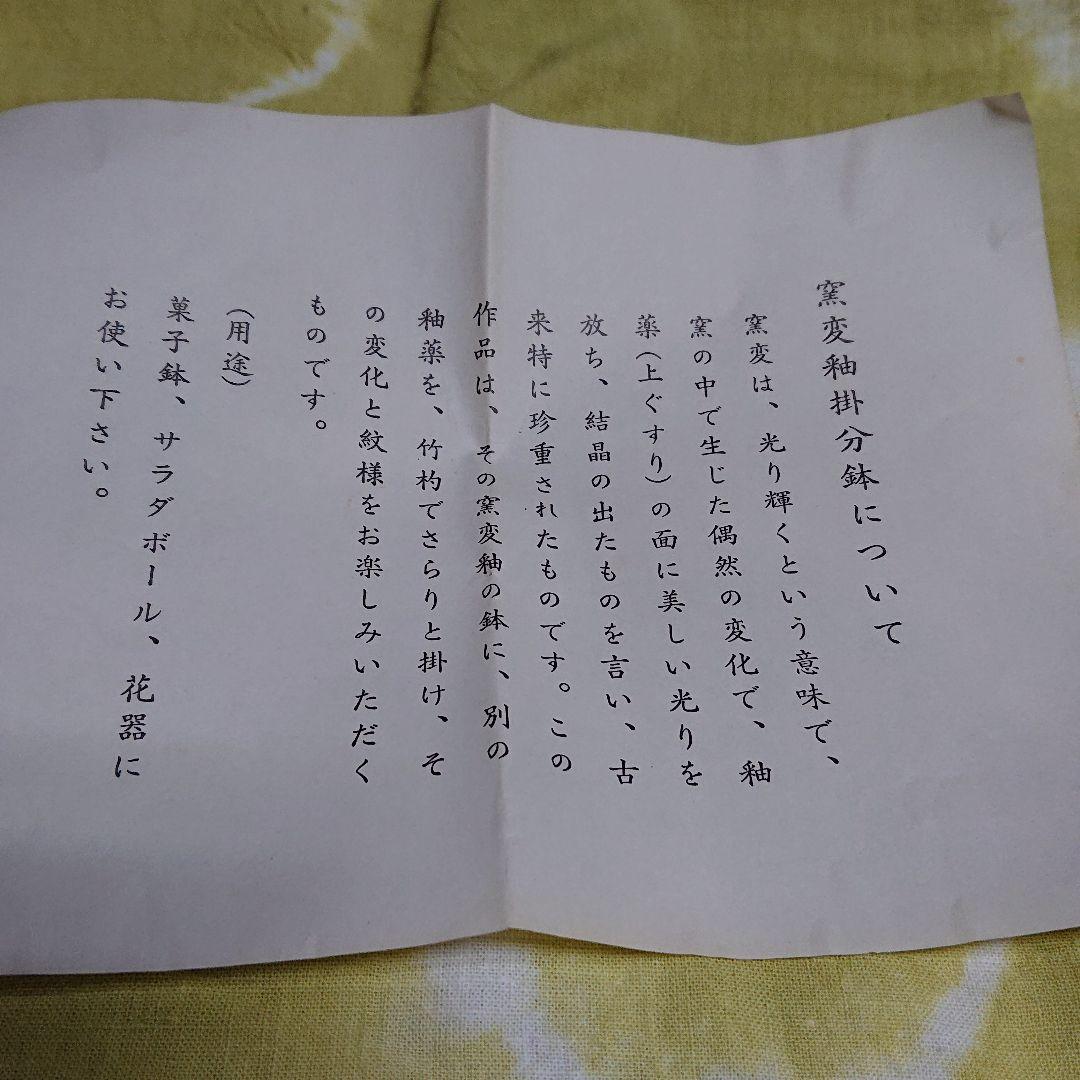 窯変釉掛分鉢について
窯変は、光り輝くという意味で、
窯の中で生じた偶然の変化で、釉
薬(上ぐすり)の面に美しい光りを
放ち、結晶の出たものを言い、古
来特に珍重されたものです。この
作品は、その窯変釉の鉢に、別の
釉薬を、竹杓でさらりと掛け、そ
の変化と紋様をお楽しみいただく
ものです。
(用途)
菓子鉢、サラダボール、花器に
お使い下さい。